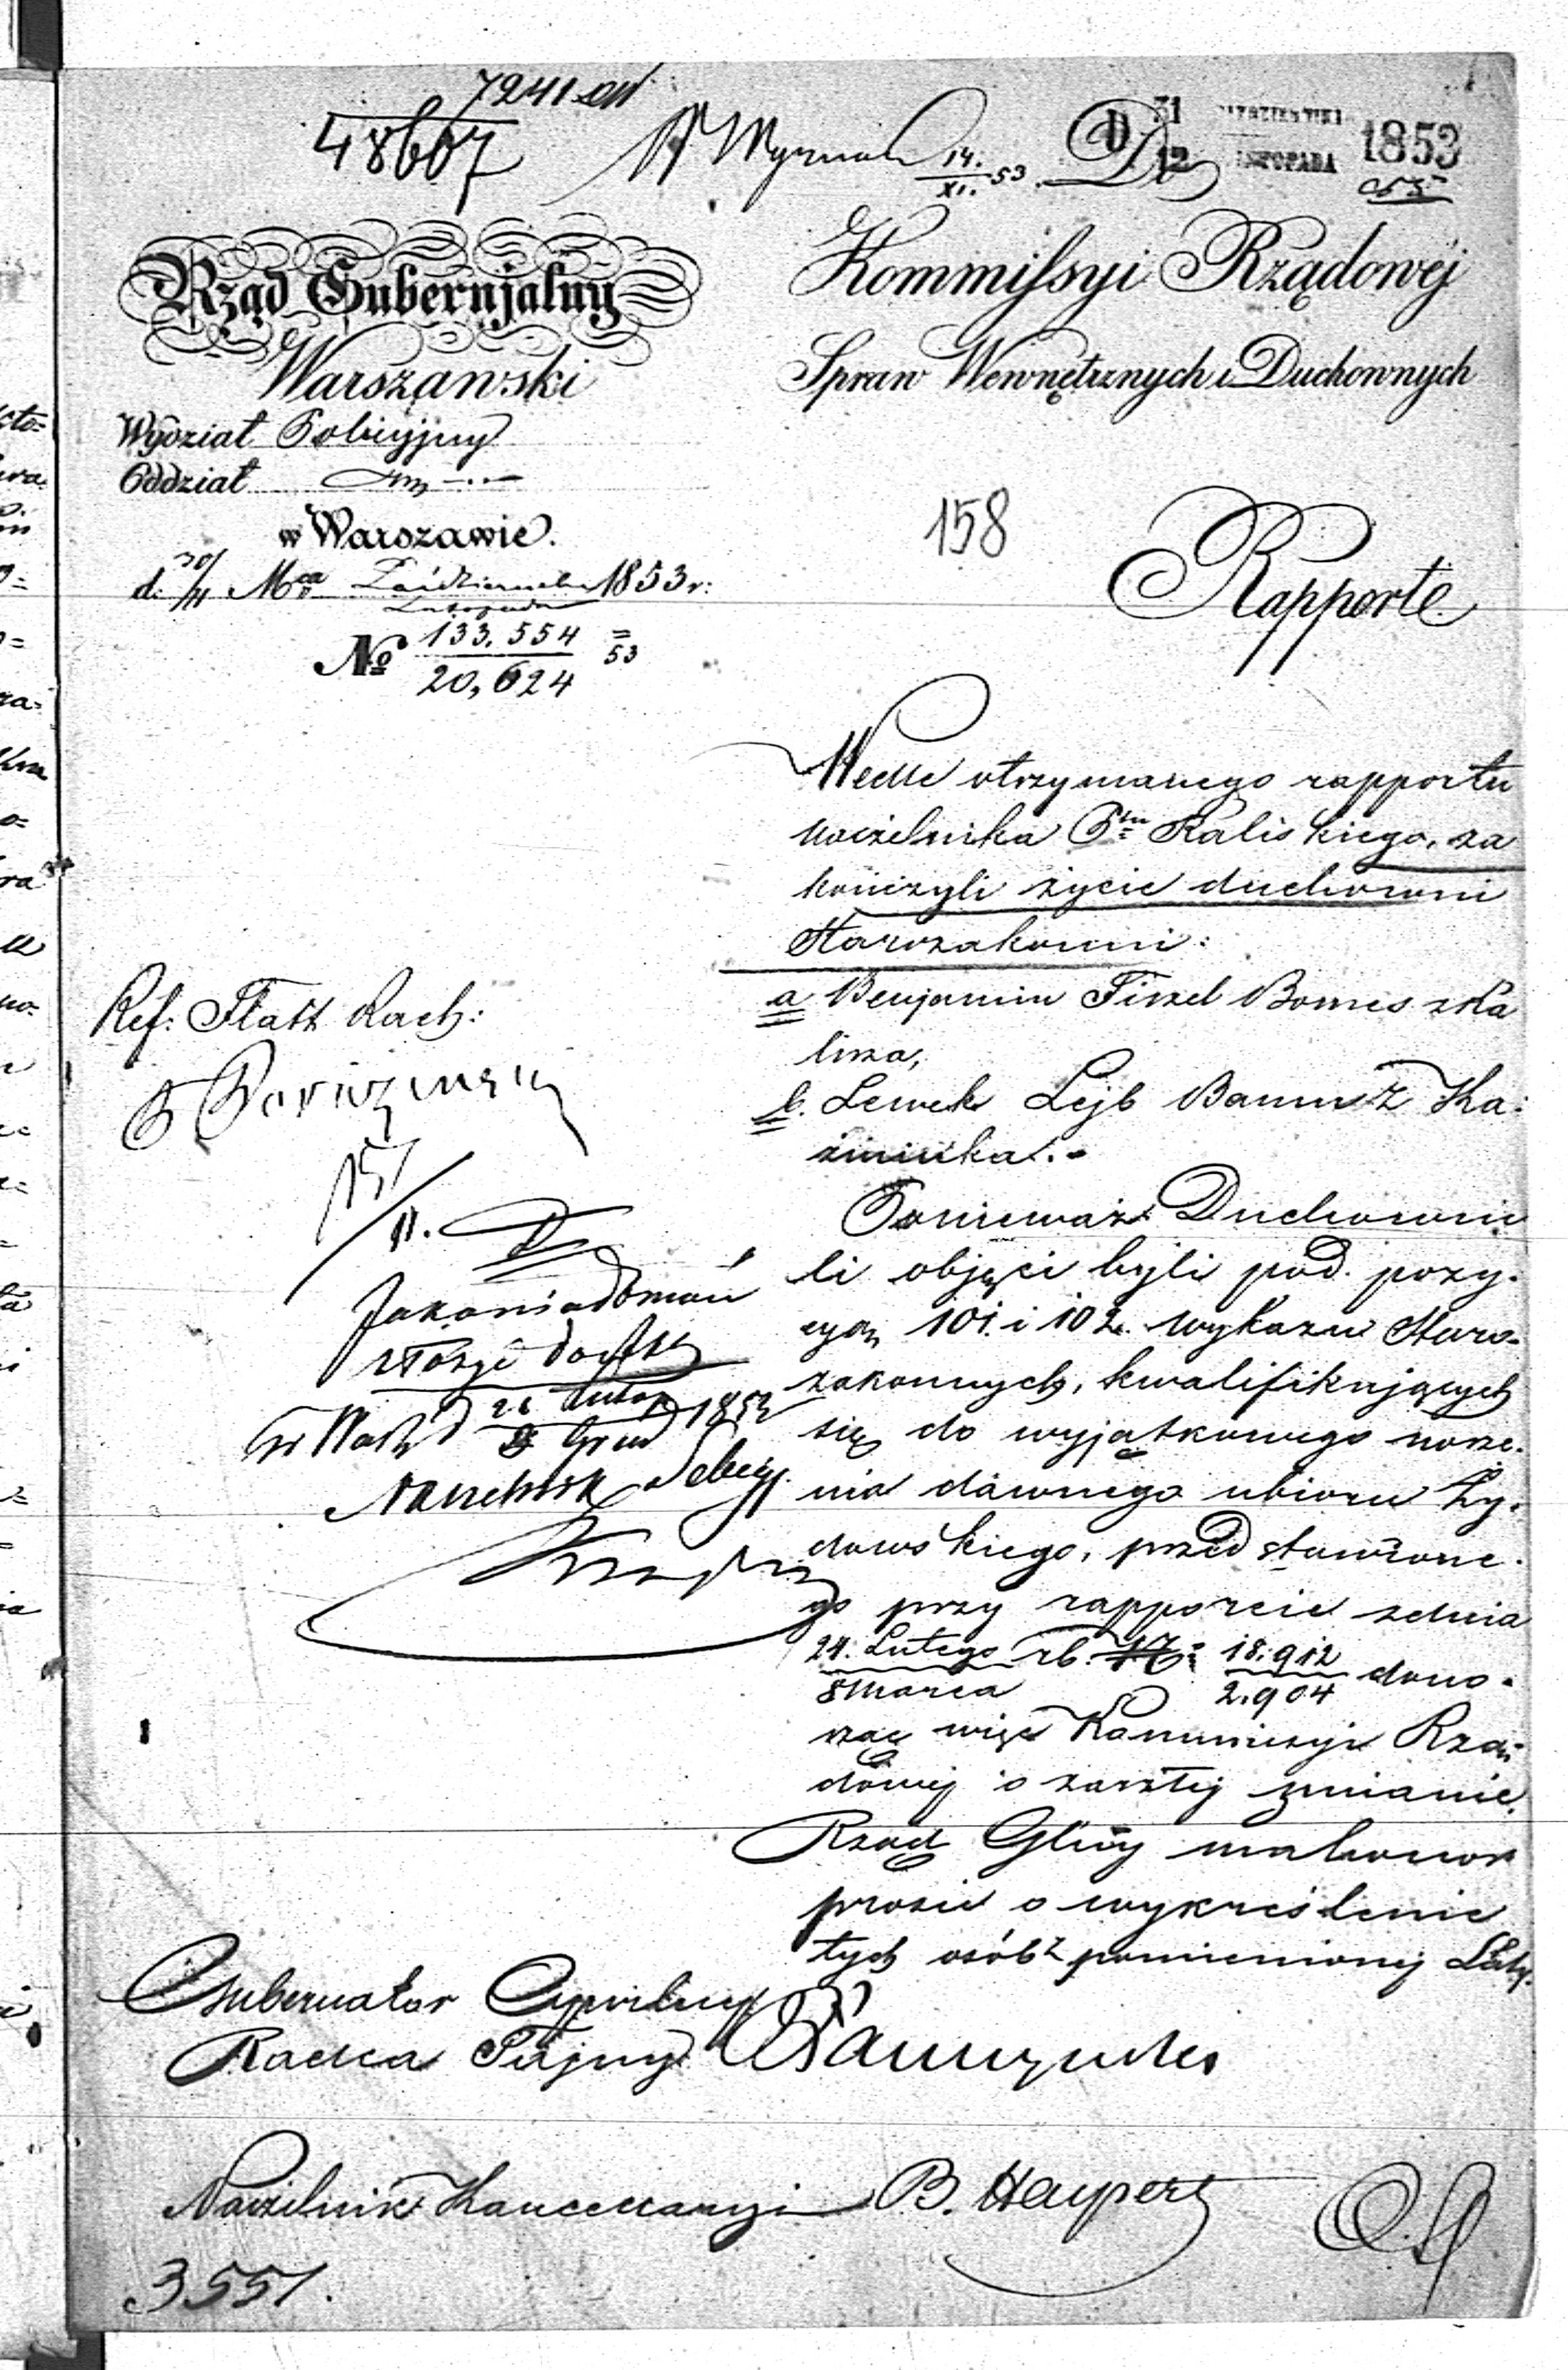 7241
48607
14. XI. 53
31 PAŹDZIERNIKA
12 LISTOPADA
1853
Rząd Gubernjalny
Warszawski
Wydział Policyjny
Oddział
w Warszawie.
d. 30/11 Mca Października Listopada 1853 r.
No 133.554 / 20,624 = 53
Kommissyi Rządowéj
Spraw Wewnętrznych i Duchownych
158
Rapport
Wedle otrzymanego rapportu
Naczelnika Ptu Kaliskiego, za
kończyli życie duchowni
Starozakonni:
a Benjamin Fiszel Bornes z Ka
lisza,
b. Lewek Lejb Baum z Ka:
źminka.
Ponieważ Duchowni
ci objęci byli pod pozy-
cyą 101. i 102. wykazu Staro-
zakonnych, kwalifikujących
się do wyjątkowego nosze-
nia dawnego ubioru Ży-
dowskiego, przedstawione-
go przy rapporcie z dnia
24. Lutego / 8 Marca rb. 18.912 / 2.904 dono-
sząc więc Kommissyi Rzą-
dowej o zaszłej zmianie,
Rząd Glny ma honor
prosić o wykreślenie
tych osób z pomienionej Listy.
Ref: Flatt Rach:
15/11.
Jako wiadomość
złożyć do akt
1853
Naczelnik
Gubernator Cywilny
Radca Tajny
Naczelnik Kancellaryi B. Haypert
3551.